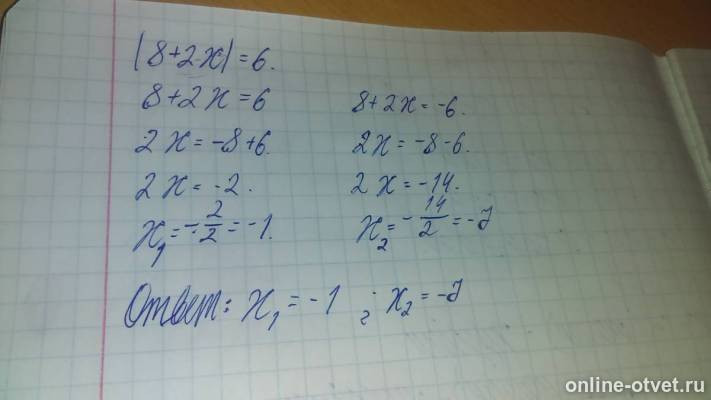 |8+2x|=6.
8+2x=6
2x=-8+6.
2x=-2.
x₁=-2/2=-1.
8+2x=-6.
2x=-8-6.
2x=-14.
x₂=-14/2=-7
Ответ: x₁=-1 ; x₂=-7
online-otvet.ru